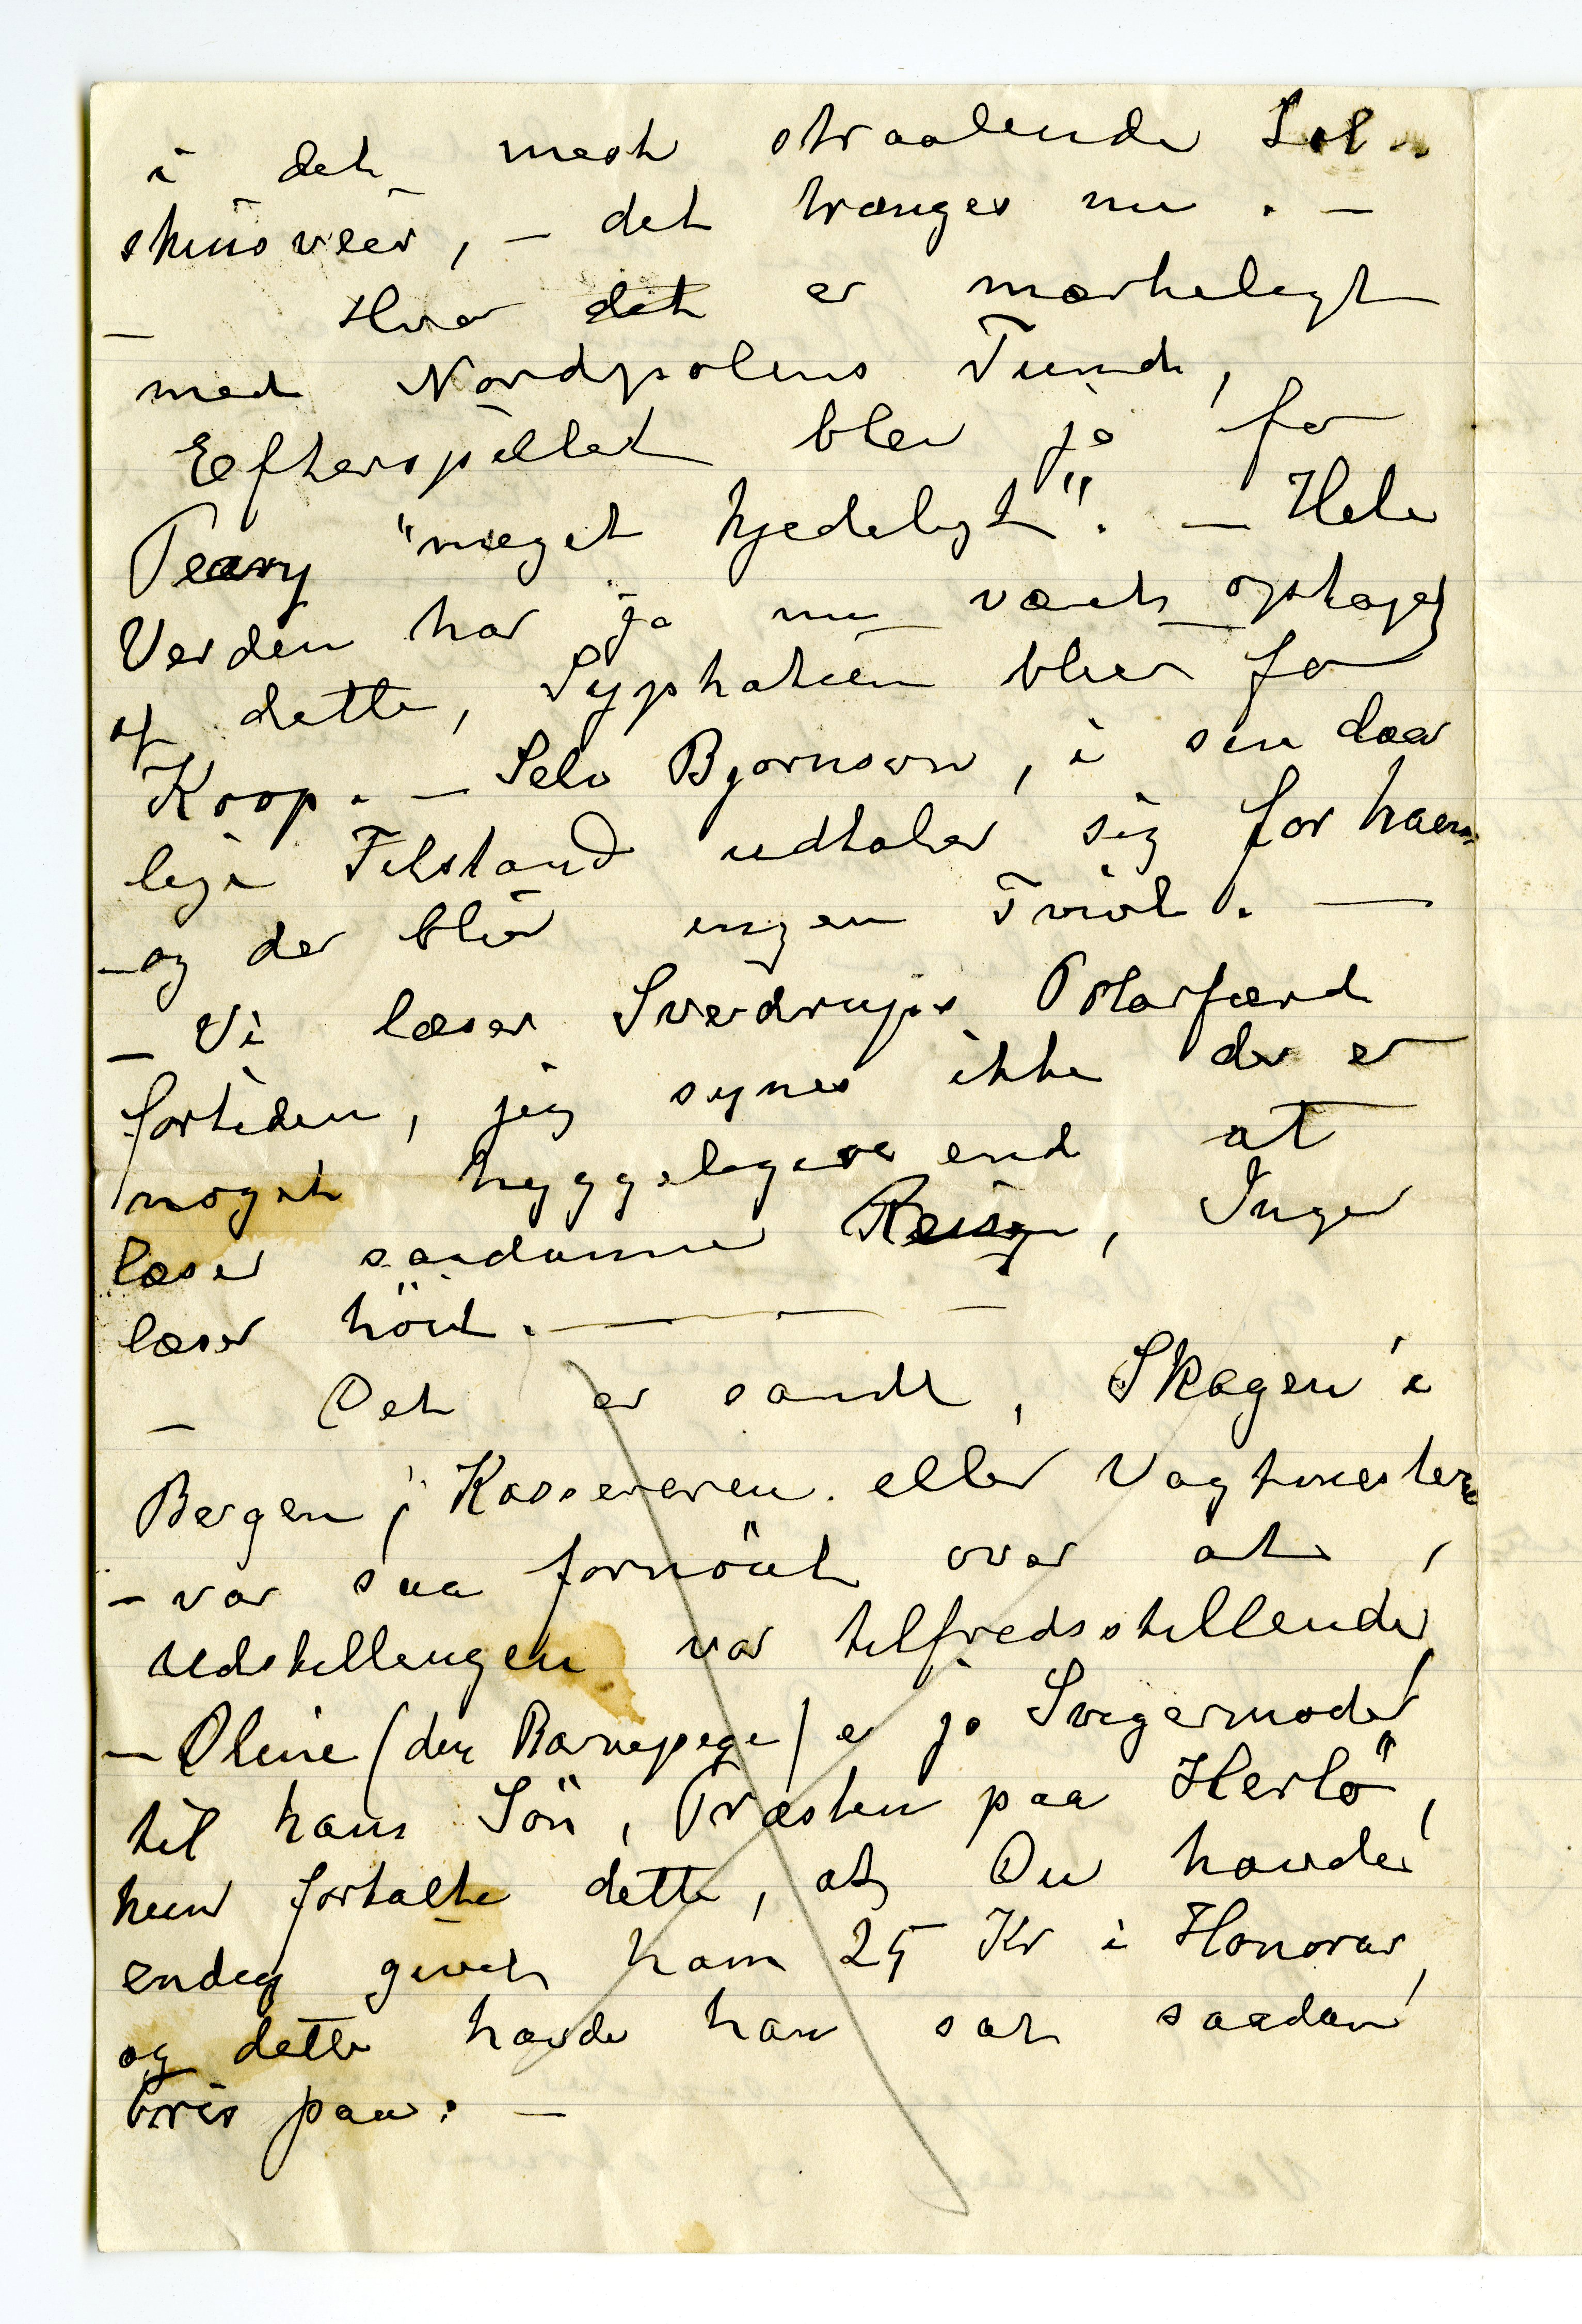 i det mest straalende Sol-
skinsveir, – det trænges nu. –
– Hvor det er mærkeligt
med Nordpolens Fund,
Efterspillet blev ja for
Peary "meget kjedeligt". – Hele
Verden har ja nu været optaget
af dette, Syphatien blev for
Koop. – Selv Bjørnson, i sin daar
lige Tilstand udtaler sig for ham
– og der blir ingen Tvivl. –
– Vi læser Sverdrups Polarfærd
fortiden, jeg synes ikke der er
noget hyggeligere end at
læser saadanne Reiser, Inger
læser höit. – – –
– Det er sandt, Skagen i
Bergen, Kassereren eller Vagtmesteren
– var saa fornöiet over at
Udstillingen var tilfredsstillende,
– Oline (den Barnepige) er ja Svigermoder
til hans Sön, Præsten paa Herlö,
hun fortalte dette, at Du havde
endog givet ham 25 Kr i Honorar,
og dette havde han sat saadan
Pris paa. –